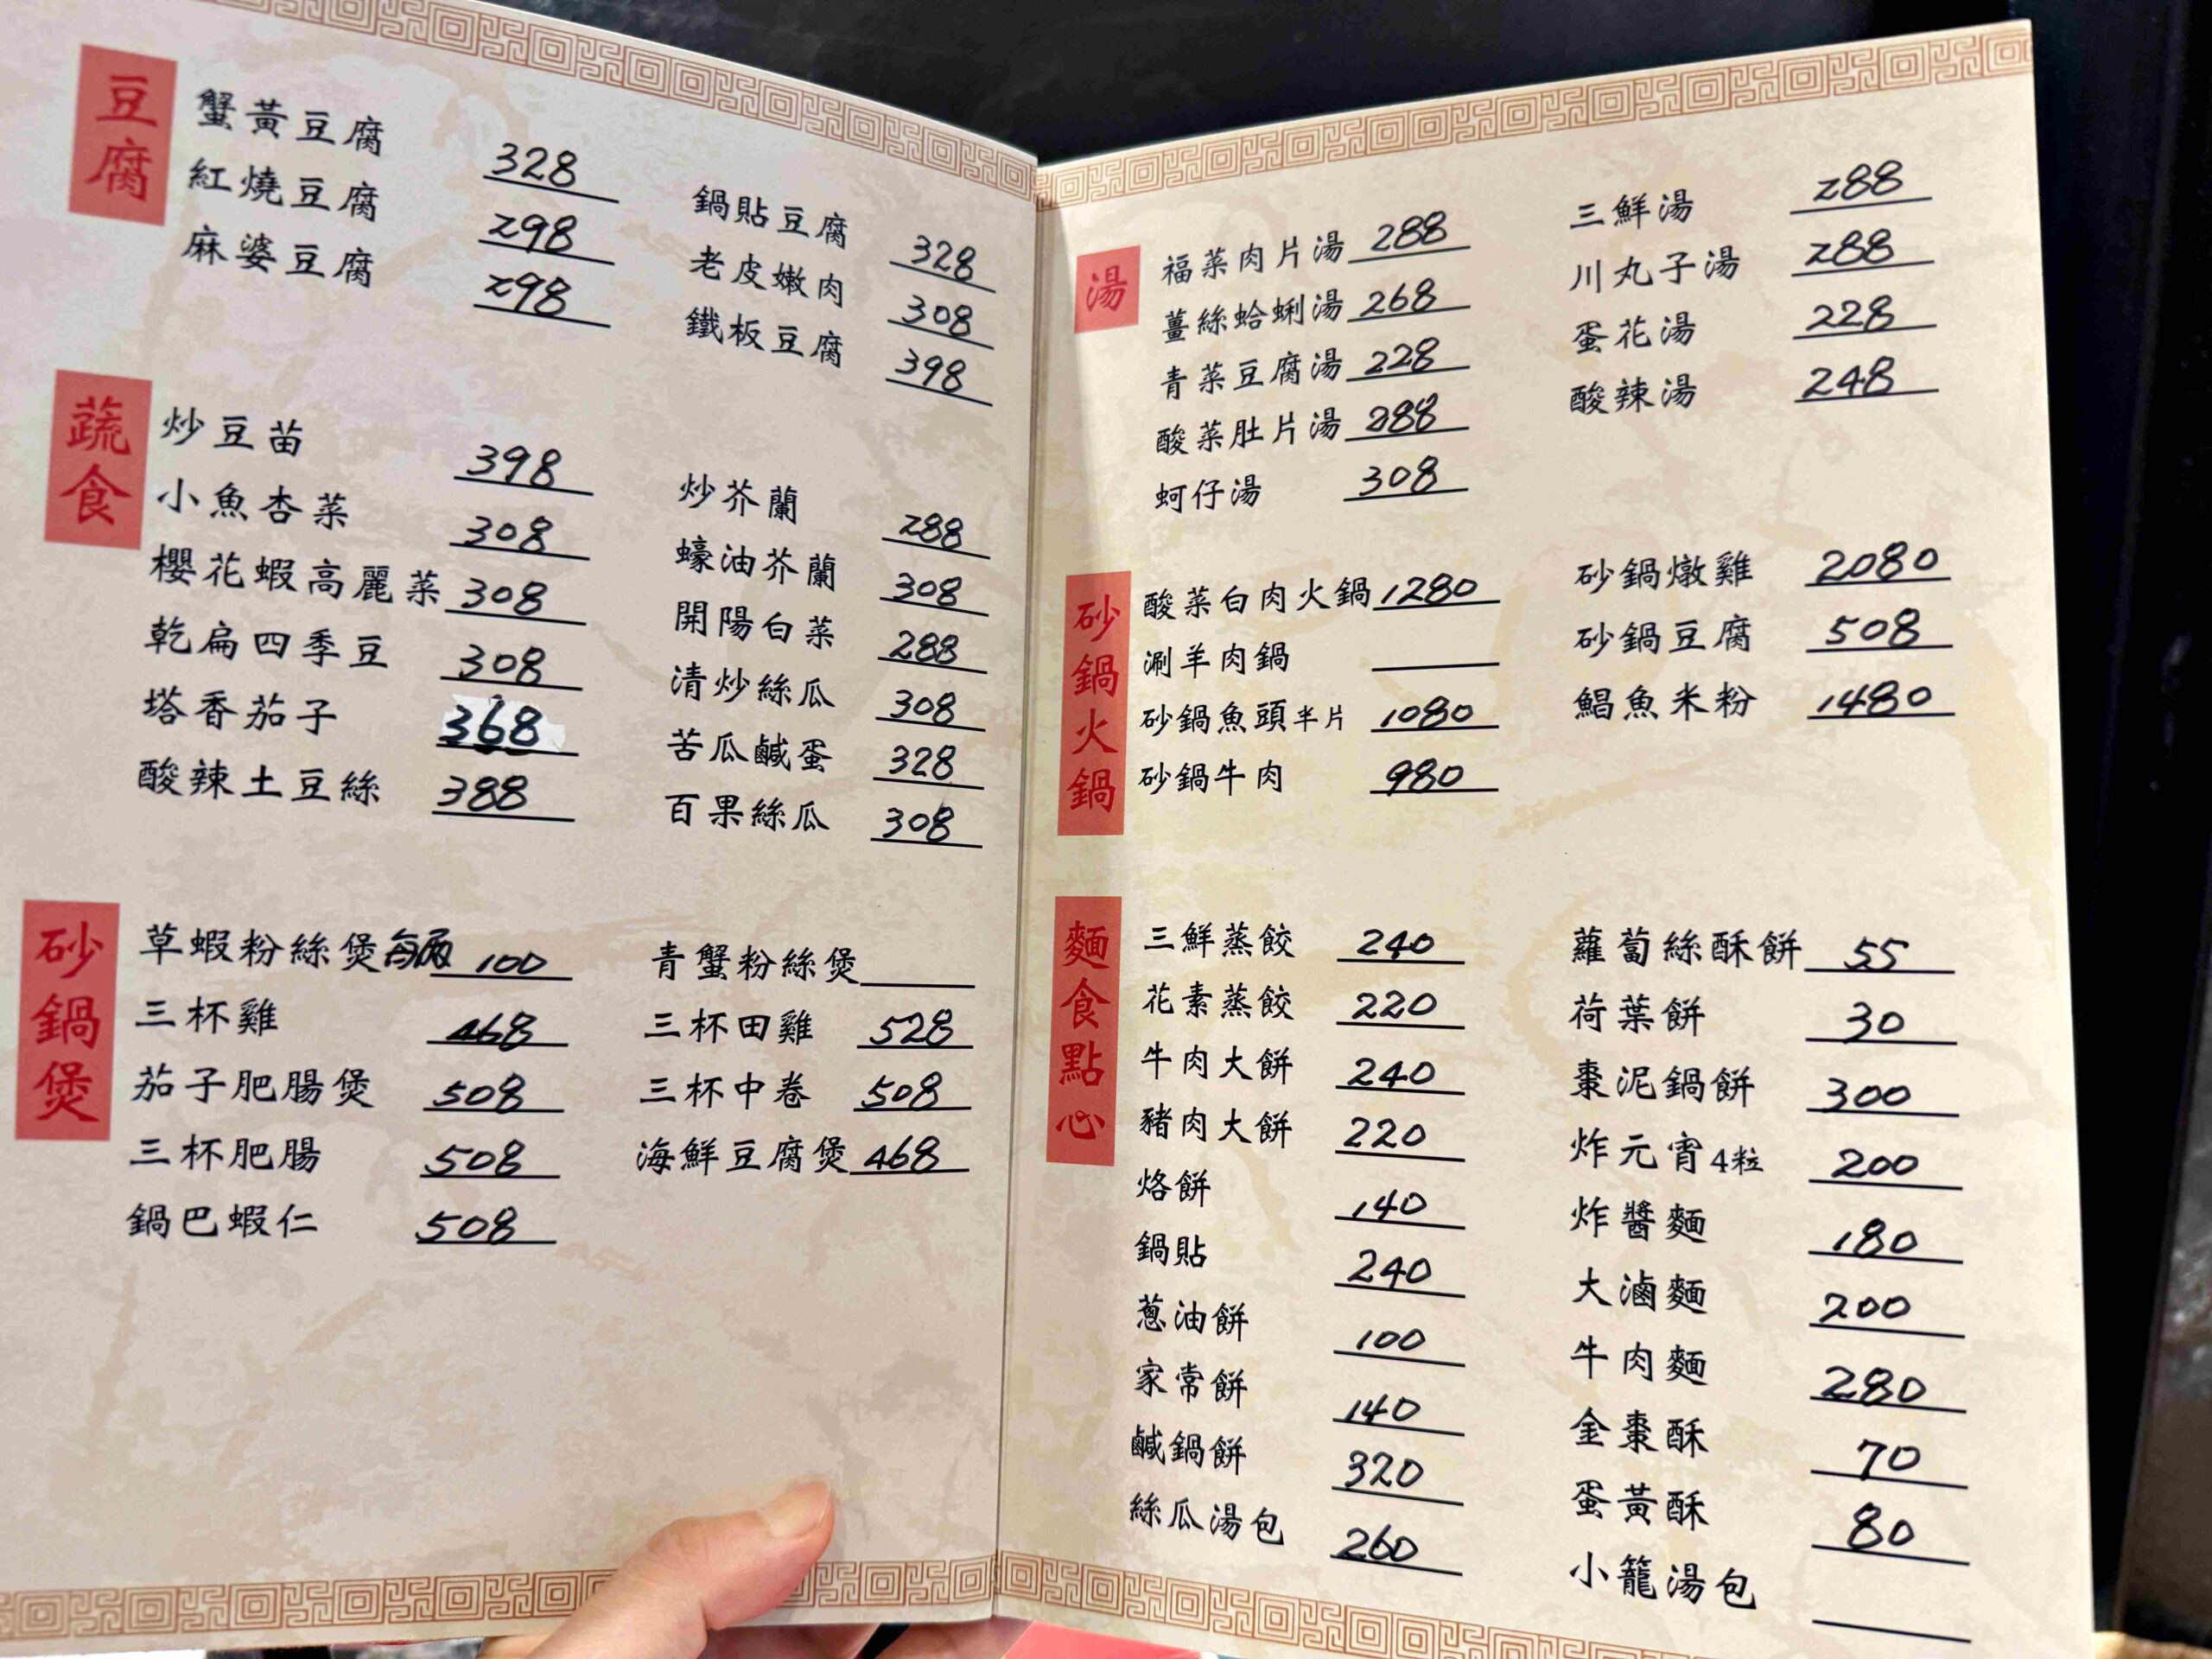 豆腐
蟹黃豆腐 328
紅燒豆腐 298
麻婆豆腐 298
鍋貼豆腐 328
老皮嫩肉 308
鐵板豆腐 398
蔬食
炒豆苗 398
小魚杏菜 308
櫻花蝦高麗菜 308
乾扁四季豆 308
塔香茄子 368
酸辣土豆絲 388
炒芥蘭 288
蠔油芥蘭 308
開陽白菜 288
清炒絲瓜 308
苦瓜鹹蛋 328
百果絲瓜 308
砂鍋煲
草蝦粉絲煲每兩 100
三杯雞 468
茄子肥腸煲 508
三杯肥腸 508
鍋巴蝦仁 508
青蟹粉絲煲
三杯田雞 528
三杯中卷 508
海鮮豆腐煲 468
湯
福菜肉片湯 288
薑絲蛤蜊湯 268
青菜豆腐湯 228
酸菜肚片湯 288
蚵仔湯 308
三鮮湯 288
川丸子湯 288
蛋花湯 228
酸辣湯 248
砂鍋火鍋
酸菜白肉火鍋 1280
涮羊肉鍋
砂鍋魚頭半片 1080
砂鍋牛肉 980
砂鍋燉雞 2080
砂鍋豆腐 508
鯧魚米粉 1480
麵食點心
三鮮蒸餃 240
花素蒸餃 220
牛肉大餅 240
豬肉大餅 220
烙餅 140
鍋貼 240
蔥油餅 100
家常餅 140
鹹鍋餅 320
絲瓜湯包 260
蘿蔔絲酥餅 55
荷葉餅 30
棗泥鍋餅 300
炸元宵4粒 200
炸醬麵 180
大滷麵 200
牛肉麵 280
金棗酥 70
蛋黃酥 80
小籠湯包